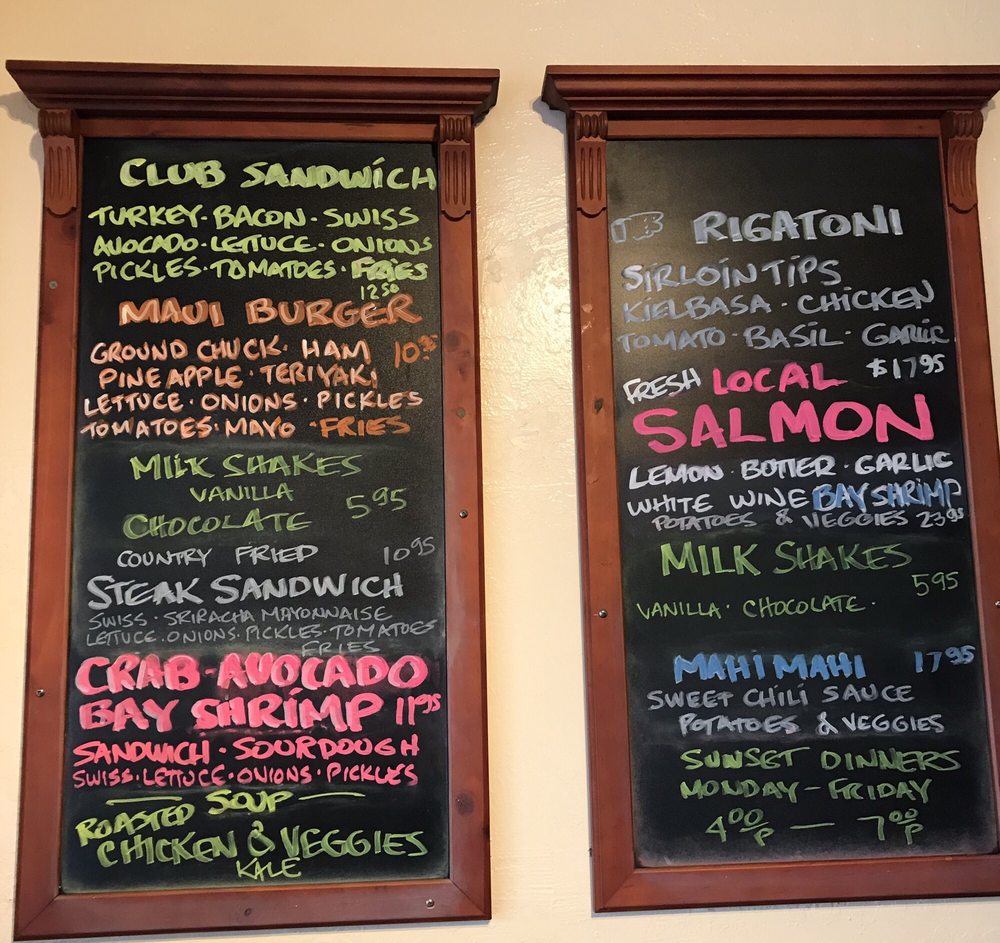 CLUB SANDWICH
TURKEY · BACON · SWISS
AVOCADO · LETTUCE · ONIONS
PICKLES · TOMATOES · FRIES
12 50
MAUI BURGER
GROUND CHUCK · HAM 10
PINEAPPLE · TERIYAKI
LETTUCE · ONIONS · PICKLES
TOMATOES · MAYO · FRIES
MILK SHAKES
VANILLA
CHOCOLATE 5 95
COUNTRY FRIED 10 95
STEAK SANDWICH
SWISS · SRIRACHA MAYONNAISE
LETTUCE · ONIONS · PICKLES · TOMATOES
FRIES
CRAB - AVOCADO
BAY SHRIMP 11 95
SANDWICH · SOURDOUGH
SWISS · LETTUCE · ONIONS · PICKLES
— SOUP —
ROASTED
CHICKEN & VEGGIES
KALE
RIGATONI
SIRLOIN TIPS
KIELBASA · CHICKEN
TOMATO · BASIL · GARLIC
$17 95
FRESH LOCAL
SALMON
LEMON · BUTTER · GARLIC
WHITE WINE BAY SHRIMP
POTATOES & VEGGIES 23 95
MILK SHAKES
5 95
VANILLA · CHOCOLATE ·
MAHI MAHI 17 95
SWEET CHILI SAUCE
POTATOES & VEGGIES
SUNSET DINNERS
MONDAY - FRIDAY
4 00 P — 7 00 P